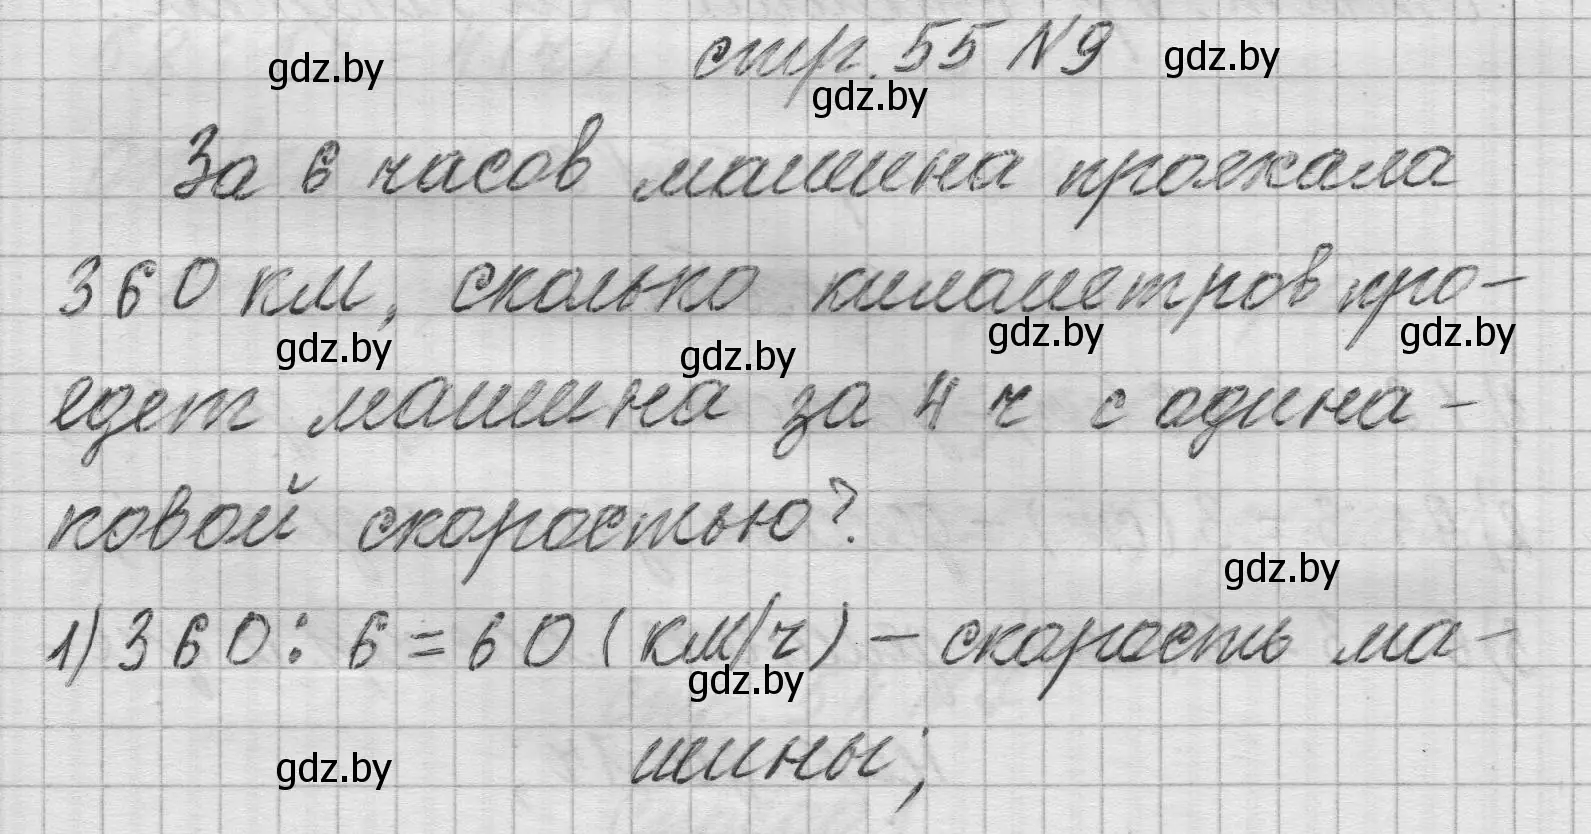 стр. 55 №9
gdz.by
gdz.by
gdz.by
За 6 часов машина проехала
360 км, сколько километров про-
gdz.by
gdz.by
gdz.by
gdz.by
едет машина за 4 ч с одина-
ковой скоростью?
gdz.by
1) 360 : 6 = 60 (км/ч) – скорость ма-
gdz.by
шины;
gdz.by